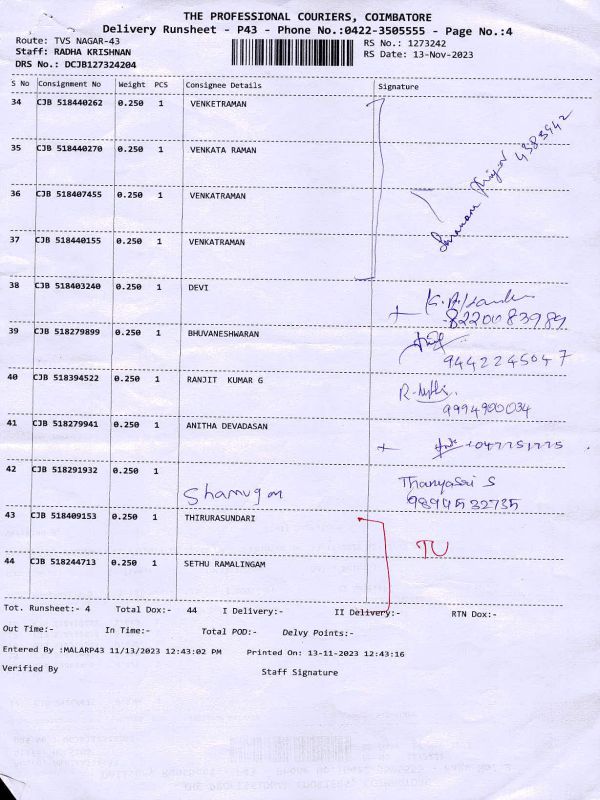 THE PROFESSIONAL COURIERS, COIMBATORE
Delivery Runsheet - P43 - Phone No.:0422-3505555 - Page No.:4
Route: TVS NAGAR-43
Staff: RADHA KRISHNAN
DRS No.: DCJB127324204
RS No.: 1273242
RS Date: 13-Nov-2023
S No Consignment No Weight PCS Consignee Details Signature
34 CJB 518440262 0.250 1 VENKETRAMAN
35 CJB 518440270 0.250 1 VENKATA RAMAN
36 CJB 518407455 0.250 1 VENKATRAMAN
37 CJB 518440155 0.250 1 VENKATRAMAN
38 CJB 518403240 0.250 1 DEVI
8220083989
39 CJB 518279899 0.250 1 BHUVANESHWARAN
9442245047
40 CJB 518394522 0.250 1 RANJIT KUMAR G
9994900034
41 CJB 518279941 0.250 1 ANITHA DEVADASAN
42 CJB 518291932 0.250 1 Thanyasai S
9894532735
43 CJB 518409153 0.250 1 THIRURASUNDARI
TU
44 CJB 518244713 0.250 1 SETHU RAMALINGAM
Tot. Runsheet:- 4 Total Dox:- 44 I Delivery:- II Delivery:- RTN Dox:-
Out Time:- In Time:- Total POD:- Delvy Points:-
Entered By :MALARP43 11/13/2023 12:43:02 PM Printed On: 13-11-2023 12:43:16
Verified By Staff Signature